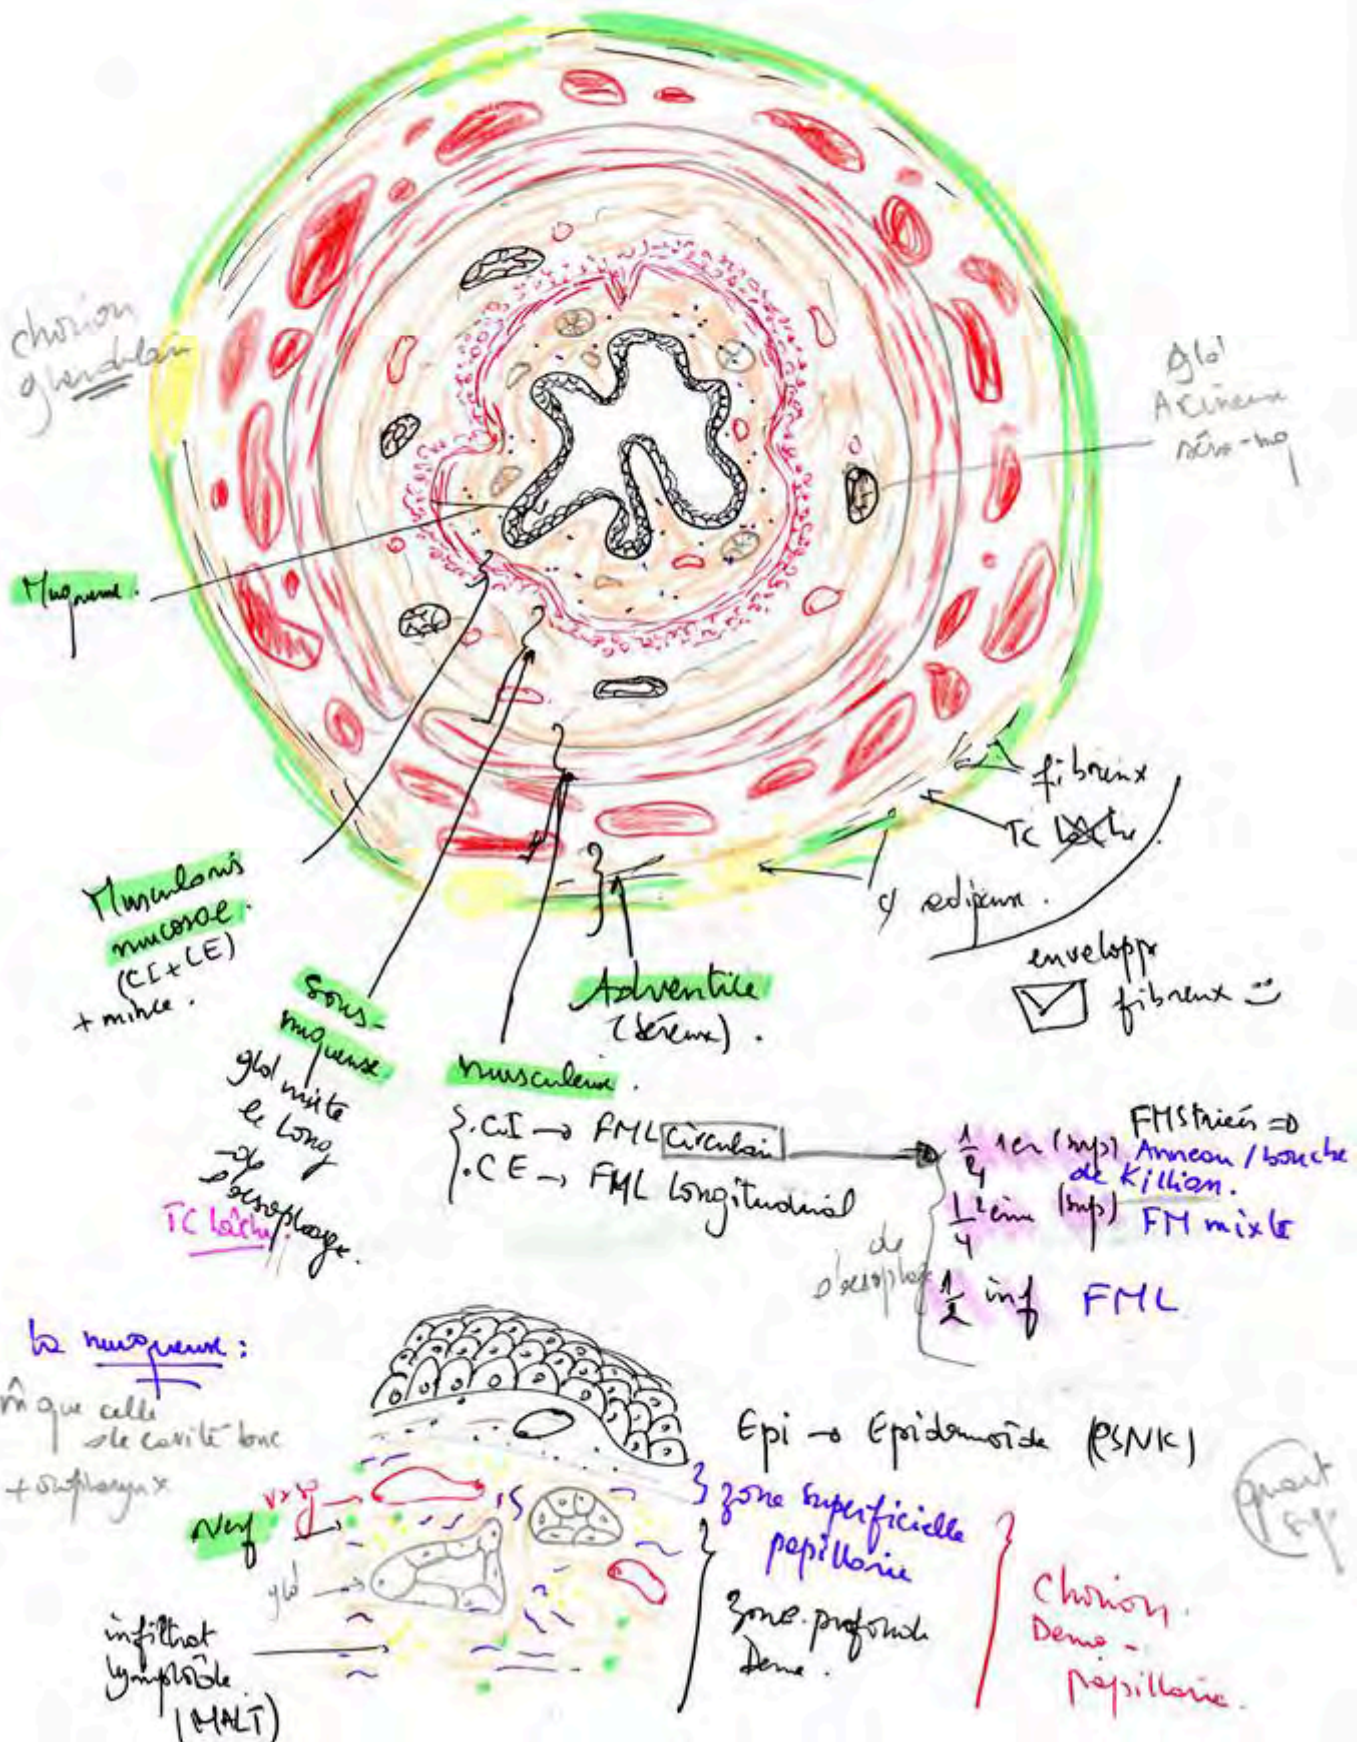 chorion
glandulair
glô
Acineux
séro-mq
Muqueuse.
fibreux
TC lâche.
c/ adipeux.
enveloppe
fibreux
Muscularis
mucosae.
(CI+LE)
+ mince.
Sous-
muqueuse.
glô mixte
le long
de
l'oesophage.
TC lâche
Adventice
(séreux).
musculeuse.
.CI → FML circulair
.CE → FML Longitudinal
1/4 1er (sup) FMStriées ⇒
Anneau / bouche
de Killian.
1/4 2ème (sup) FM mixte
1/2 inf FML
de
l'oesophage
la muqueuse :
m̂ que celle
de cavité bucc
+ oropharynx
Epi → Epidermoïde (PSNK)
zone superficielle
papillaire
zone profonde
Dense.
Chorion.
Dermo-
papillaire.
Vx sg
Nerf
glô
infiltrat
lymphoïde
(MALT)